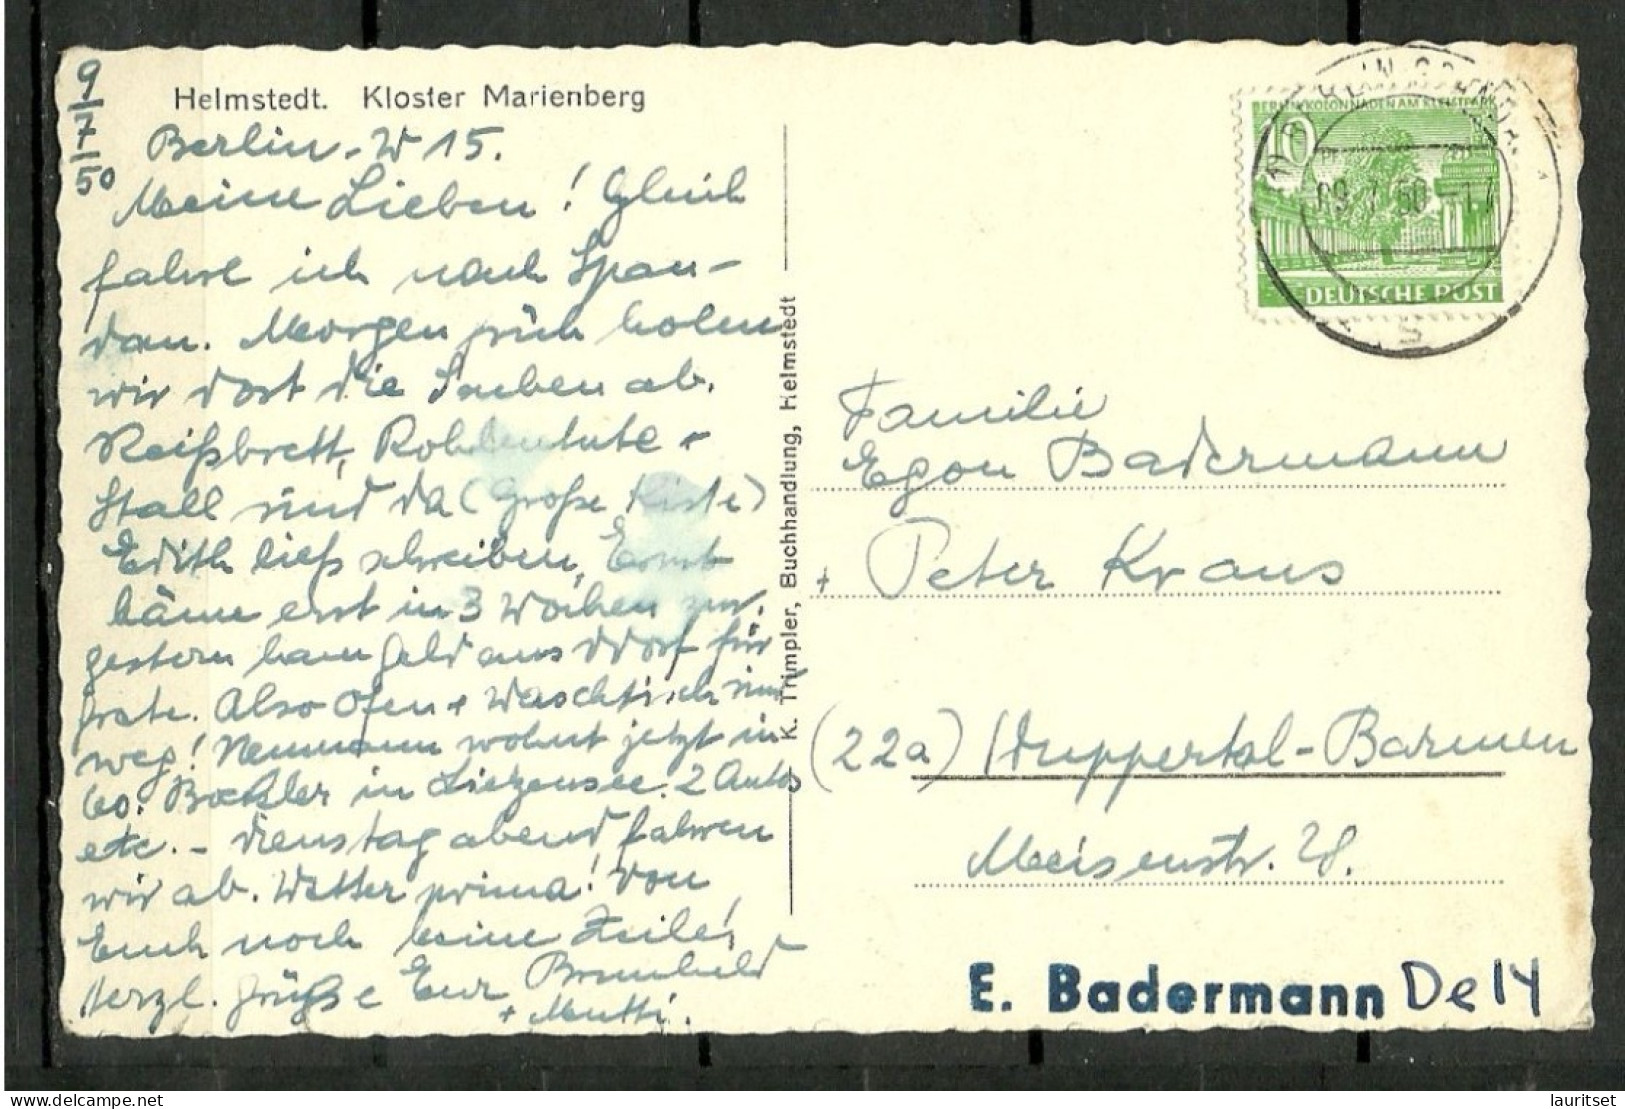 9/7/50
Helmstedt. Kloster Marienberg
Berlin-W 15.
Meine Lieben! Gleich
fahre ich nach Span-
dau. Morgen früh holen
wir dort die Sachen ab.
Reißbrett, +
Stall sind da (Große Kiste)
Edith ließ schreiben, Ernst
käme erst in 3 Wochen zur.
gestern kam Geld aus Ddorf für
Grete. Also Ofen + Waschtisch sind
weg! Neumann wohnt jetzt in
Co. in Lietzensee. 2 Autos
etc. - Dienstag abend fahren
wir ab. Wetter prima! Von
Euch noch keine Zeile!
Herzl. Grüße Eure Brunhild
+ Mutti.
K. Trimpler, Buchhandlung, Helmstedt
BERLIN KOLONNADEN AM KLEISTPARK
10
DEUTSCHE POST
09.7.50-17
s
Familie
Egon Badermann
+ Peter Kraus
(22a) Wuppertal-Barmen
Meisenstr. 28.
E. Badermann De 14
delcampe.net
lauritset